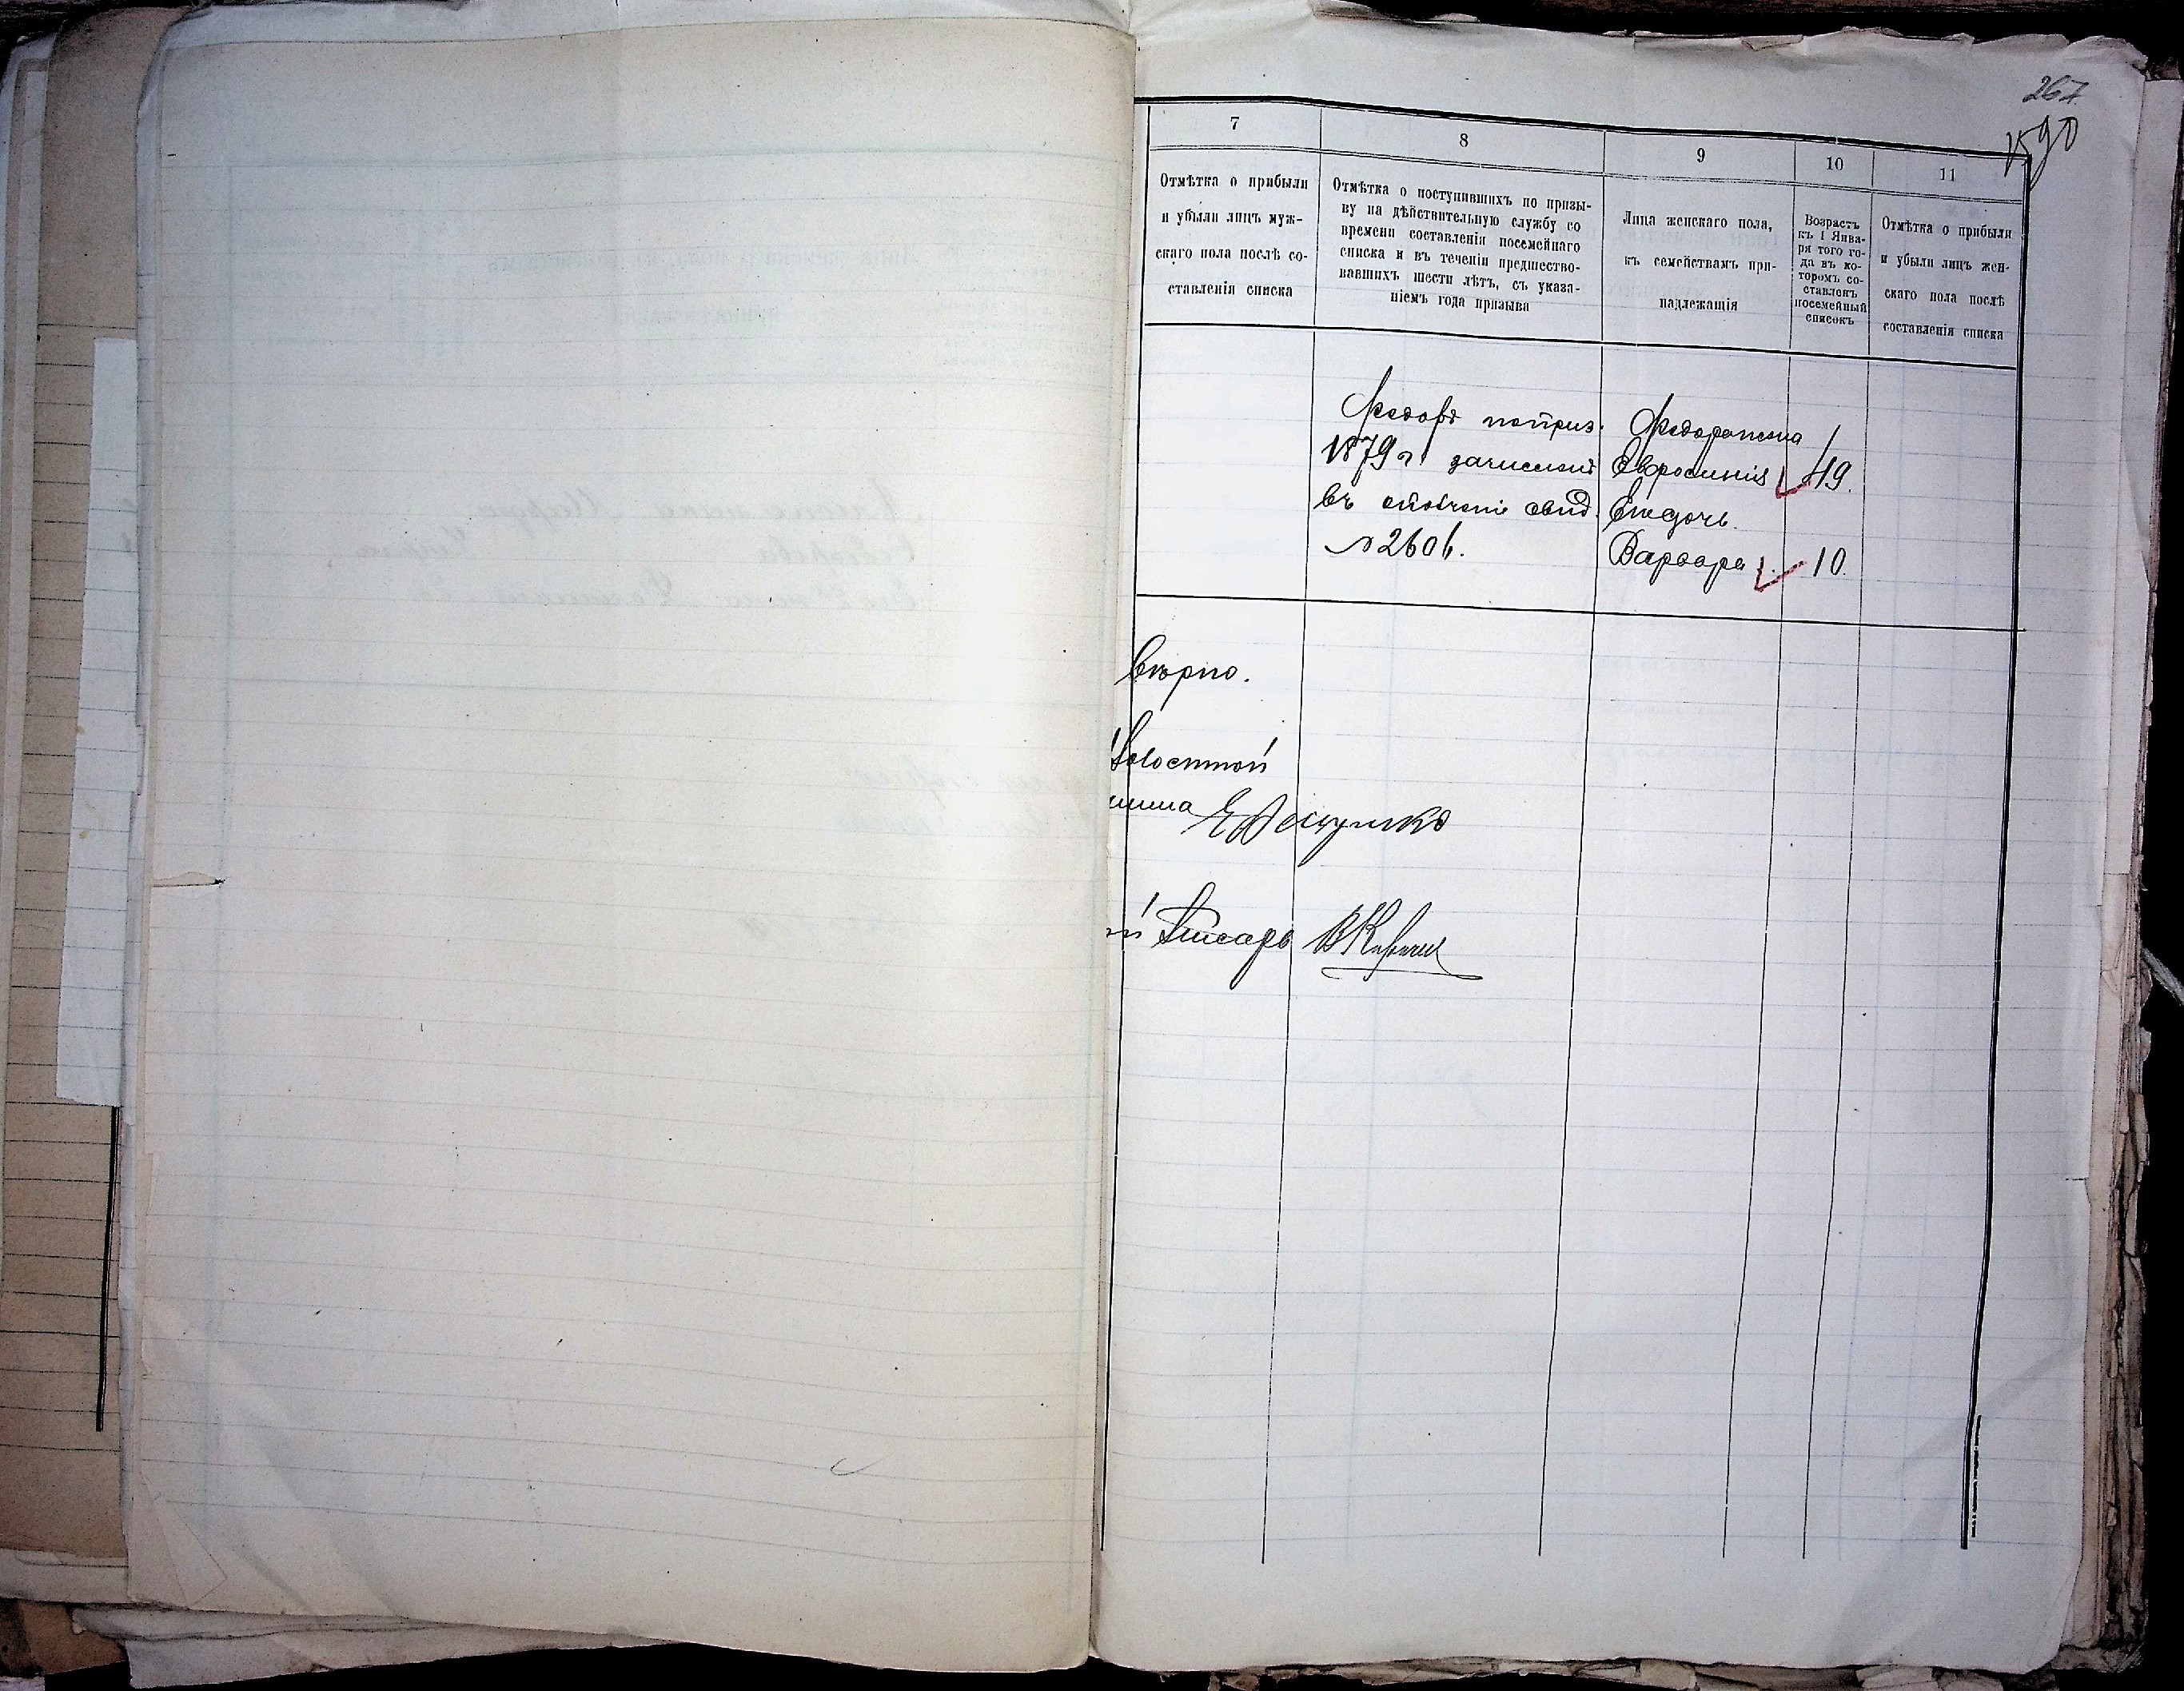 267
1590
7
8
9
10
11
Отмѣтка о прибыли
и убыли лицъ муж-
скаго пола послѣ со-
ставленія списка
Отмѣтка о поступившихъ по призы-
ву на дѣйствительную службу со
времени составленія посемейнаго
списка и въ теченіи предшество-
вавшихъ шести лѣтъ, съ указа-
ніемъ года призыва
Лица женскаго пола,
къ семействамъ при-
надлежащія
Возрастъ
къ 1 Янва-
ря того го-
да въ ко-
торомъ со-
ставленъ
посемейный
списокъ
Отмѣтка о прибыли
и убыли лицъ жен-
скаго пола послѣ
составленія списка
Федоръ поприз.
1879 г зачисленъ
въ ополчені свид.
№ 2606.
Федора жена
Евросинія 49.
Его дочь
Варвара 10.
Вѣрно.
Волостной
шина
й Писарь